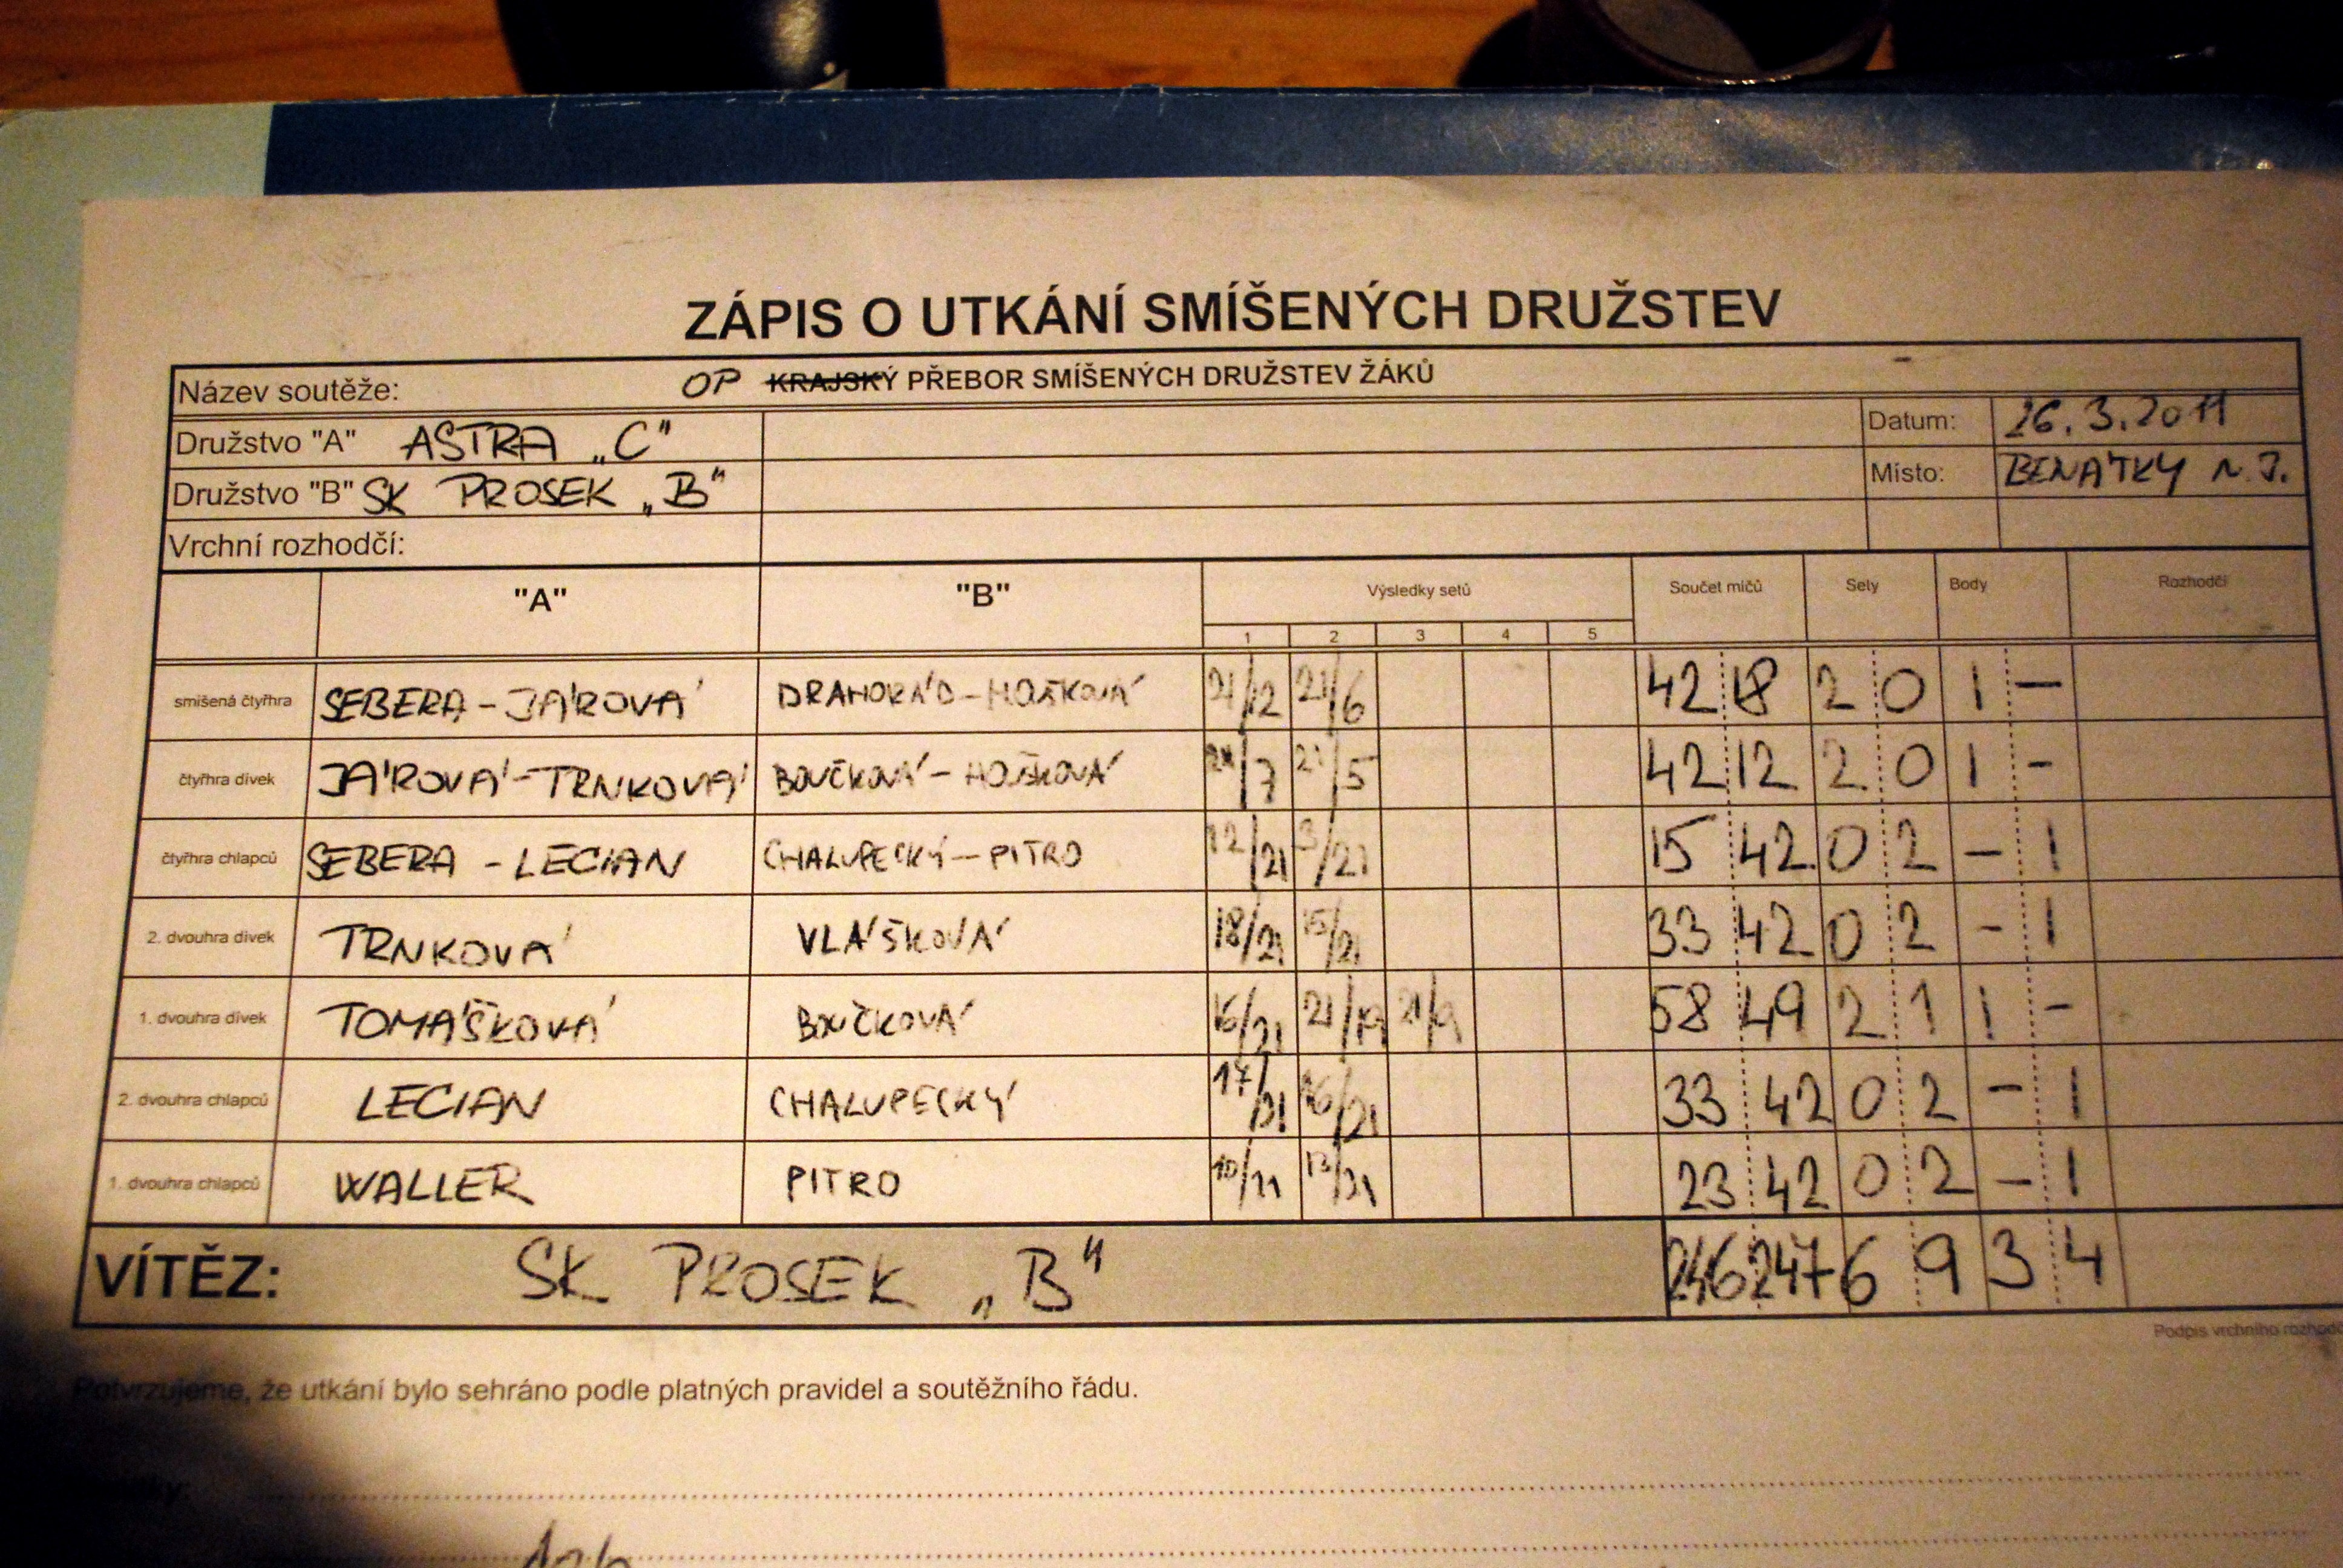 ZÁPIS O UTKÁNÍ SMÍŠENÝCH DRUŽSTEV
Název soutěže: OP KRAJSKÝ PŘEBOR SMÍŠENÝCH DRUŽSTEV ŽÁKŮ
Družstvo "A" ASTRA „C" Datum: 26.3.2011
Družstvo "B" SK PROSEK „B" Místo: BENÁTKY N.J.
Vrchní rozhodčí:
"A" "B" Výsledky setů Součet míčů Sety Body Rozhodčí
1 2 3 4 5
smíšená čtyřhra SEBERA - JÁROVÁ DRAHORÁD - HOŠKOVÁ 21/12 21/6 42 18 2 0 1 -
čtyřhra dívek JÁROVÁ - TRNKOVÁ BOUČKOVÁ - HOŠKOVÁ 21/7 21/5 42 12 2 0 1 -
čtyřhra chlapců SEBERA - LECIAN CHALUPECKÝ - PITRO 12/21 3/21 15 42 0 2 - 1
2. dvouhra dívek TRNKOVÁ VLÁŠKOVÁ 18/21 15/21 33 42 0 2 - 1
1. dvouhra dívek TOMÁŠKOVÁ BOUČKOVÁ 16/21 21/19 21/9 58 49 2 1 1 -
2. dvouhra chlapců LECIAN CHALUPECKÝ 17/21 16/21 33 42 0 2 - 1
1. dvouhra chlapců WALLER PITRO 10/21 13/21 23 42 0 2 - 1
VÍTĚZ: SK PROSEK „B" 246 247 6 9 3 4
Podpis vrchního
Potvrzujeme, že utkání bylo sehráno podle platných pravidel a soutěžního řádu.